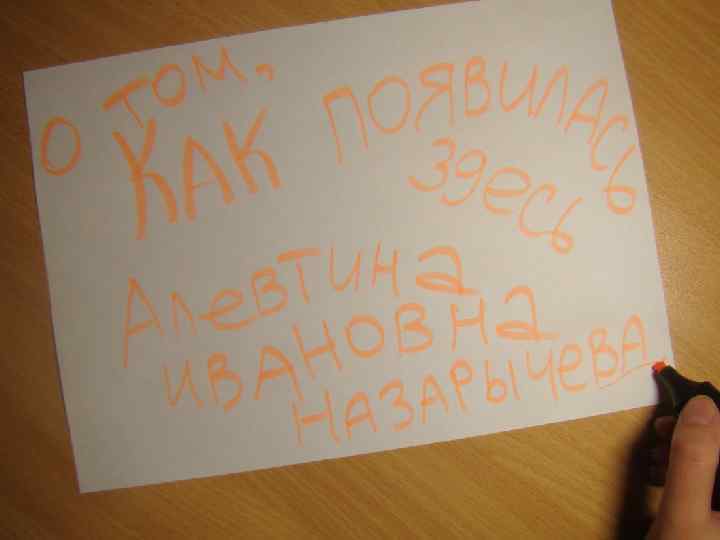 О ТОМ,
КАК ПОЯВИЛАСЬ
ЗДЕСЬ
АЛЕВТИНА
ИВАНОВНА
НАЗАРЫЧЕВА